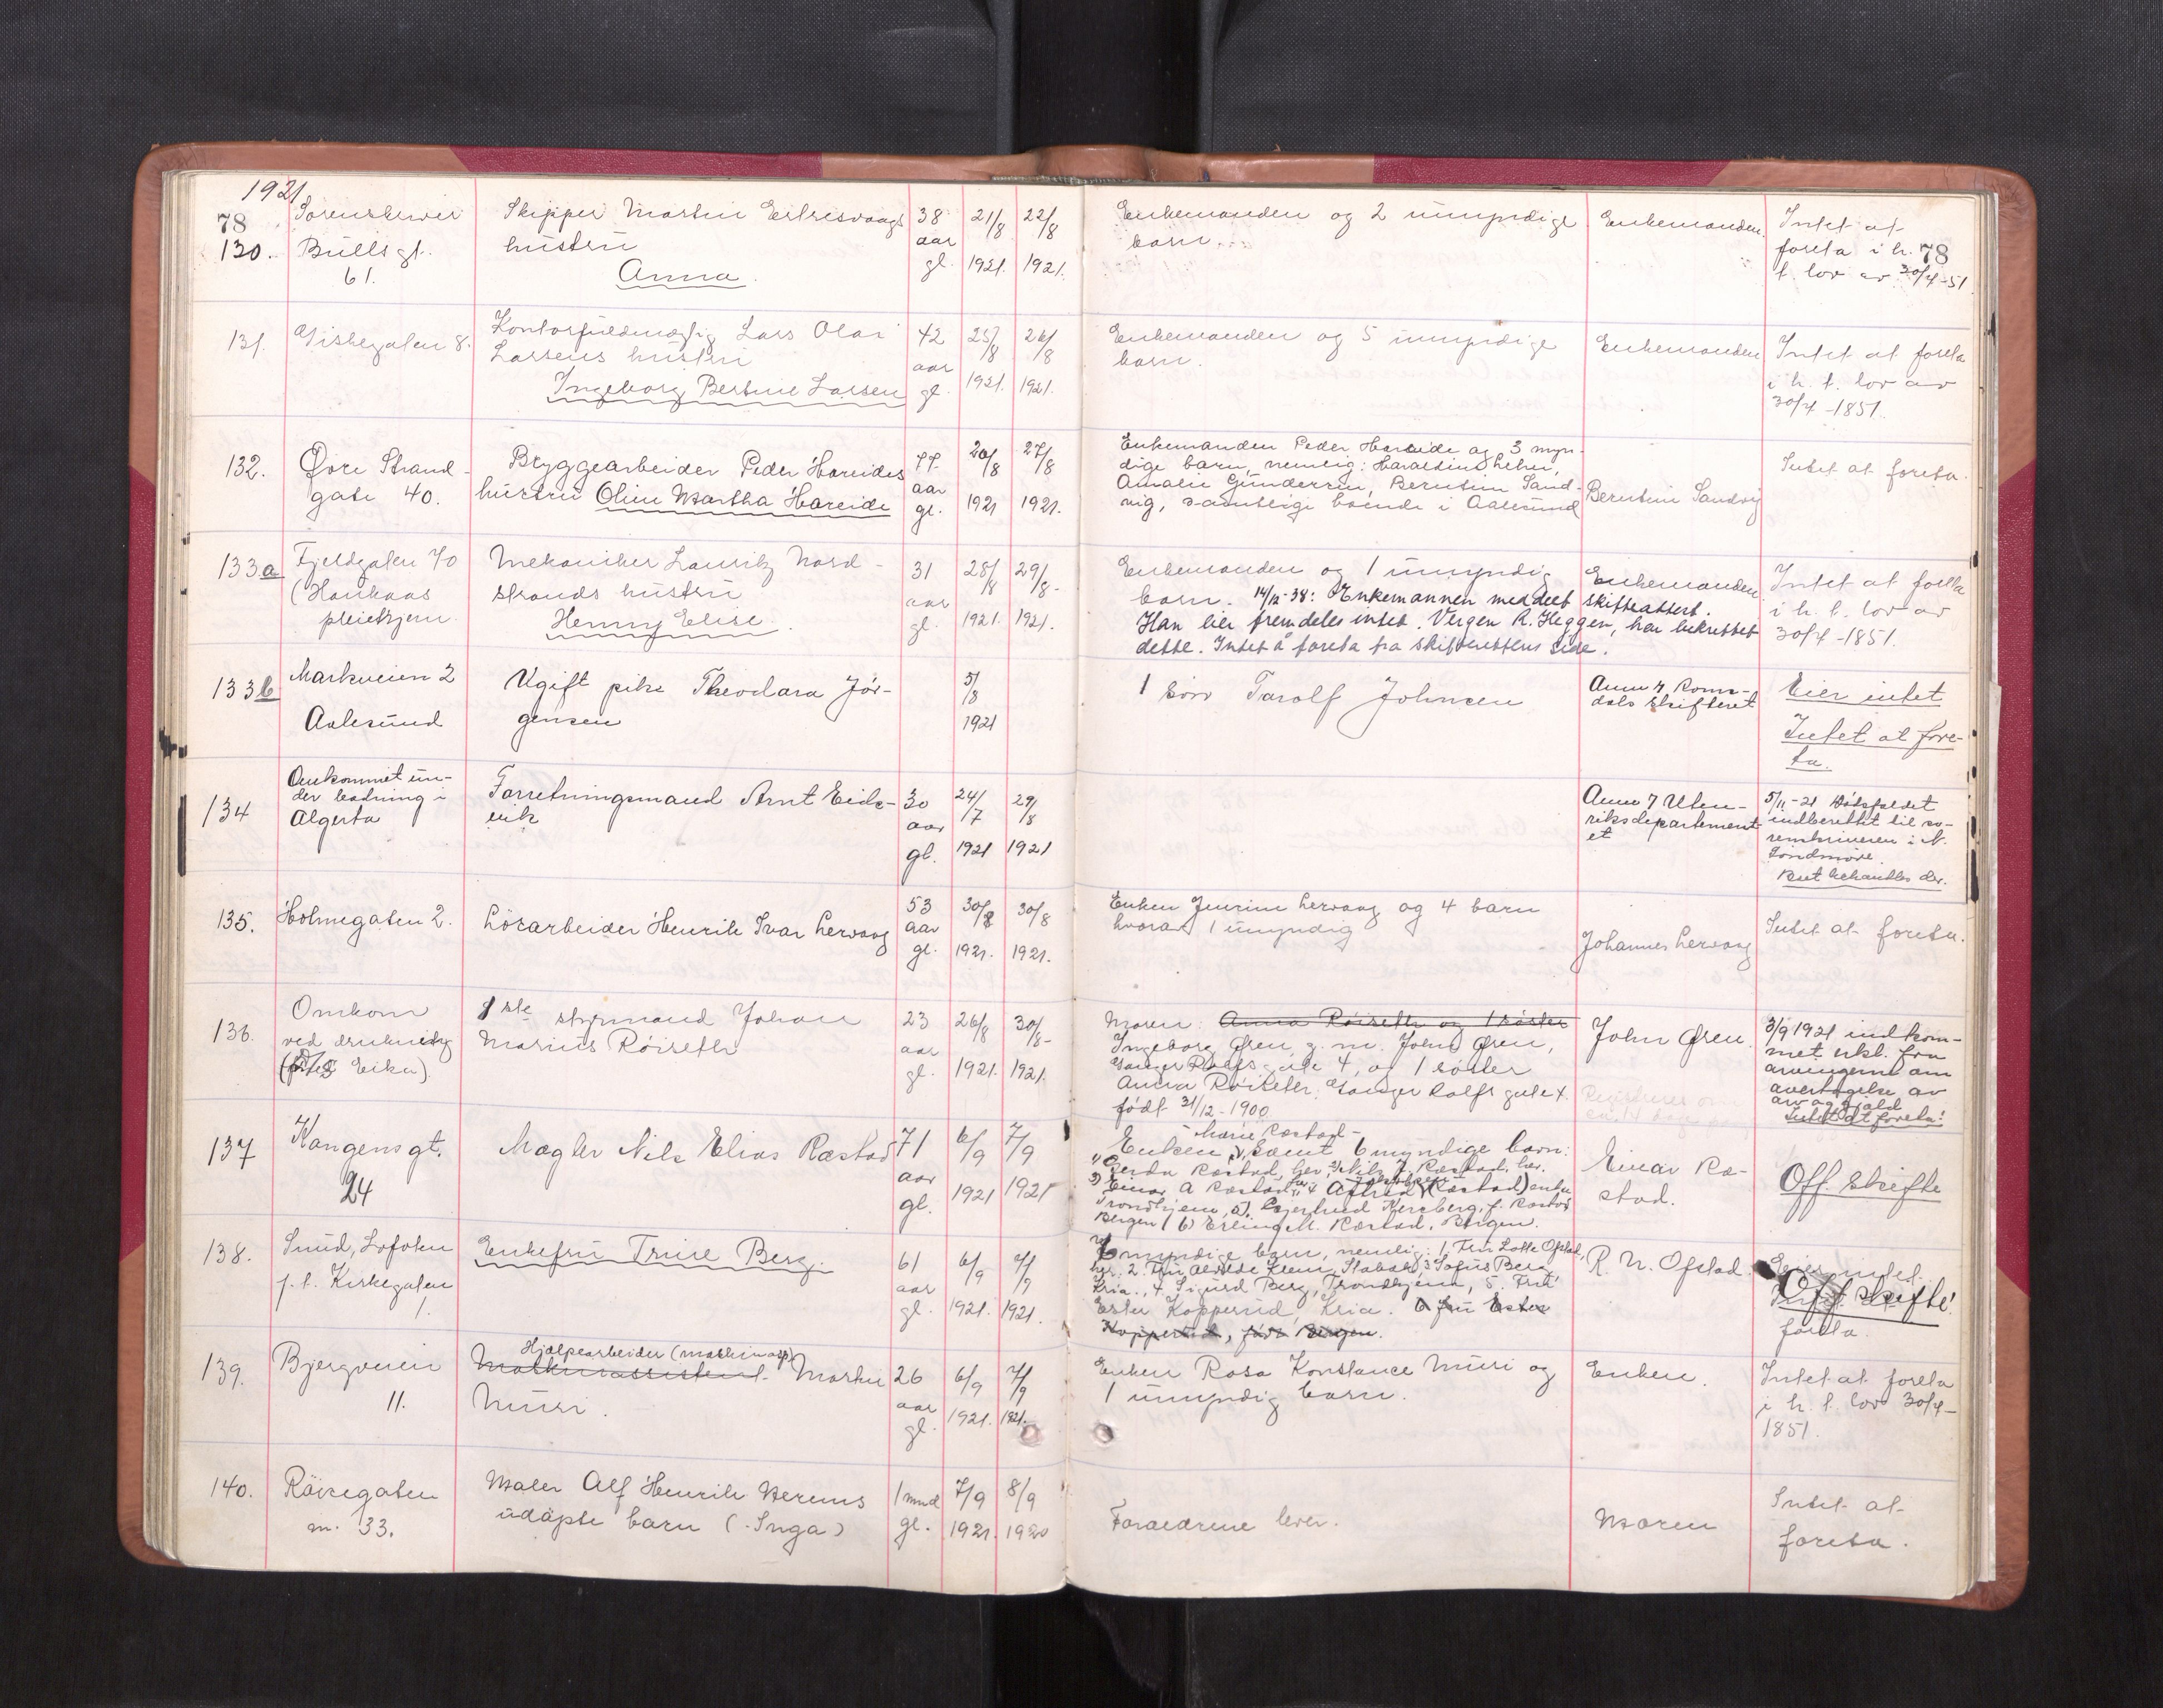 1921
78
130. Sorenskriver Skipper Martin Eertsvaags 38 21/8 22/8 Enkemanden og 2 umyndige Enkemanden. Intet at
Bulls gt. hustru aar barn. foreta i h. 78
61. Anna. gl. 1921. 1921. t. lov av 30/4-51
131. Giskegaten 8. Kontorfuldmægtig Lars Olai 42 25/8 26/8 Enkemanden og 5 umyndige Enkemanden Intet at foreta
Larsens hustru aar barn. i h. t. lov av
Ingeborg Bertine Larsen gl. 1921. 1921. 30/4-1851.
132. Øvre Strand- Bryggearbeider Peder Hareides 77 26/8 27/8 Enkemanden Peder Hareide og 3 myn- Intet at foreta.
gate 40. hustru Oline Martha Hareide aar dige barn, nemlig:
gl. 1921 1921. Amalie Gundersen, Berntine Sand- Berntine Sandvig
vig, samtlige boende i Aalesund
133a Fjeldgaten 70 Mekaniker Lauritz Nord- 31 28/8 29/8- Enkemanden og 1 umyndig Enkemanden Intet at foreta
(Haukaas strands hustru aar barn. 14/12-38: Enkemannen meddelt skifteattest. i h. t. lov av
pleiehjem. Henny Elise. gl. 1921. 1921. Han eier fremdeles intet. Vergen R. Heggen, har bekreftet 30/4-1851.
dette. Intet å foreta fra skifterettens side.
133b Markveien 2 Ugift pike Theodara Jör- 5/8 1 sön Tarolf Johnsen Anm. f. Roms- Eier intet
Aalesund gensen 1921 dals skifteret Intet at fore-
ta.
134 Omkommet un- Forretningsmand Arnt Eids- 30 24/7 29/8 Anm f Uten- 5/11-21 Dödsfaldet
der badning i vik aar riksdepartement- indberettet til so-
Algerta gl. 1921 1921 et renskriveren i N.
Söndmöre.
Boet behandles der.
135. Holmegaten 2. Lösarbeider Henrik Ivar Lervaag 53 30/8 30/8 Enken Jensine Lervaag og 4 barn Intet at foreta.
aar hvorav 1 umyndig Johannes Lervaag
gl. 1921. 1921.
136. Omkom 1ste styrmand Johan 23 26/8 30/8- Moren: Anna Röiseth og 1 söster John Øren. 3/9 1921 indkom-
ved drukning Marius Röiseth aar Ingeborg Øren, g. m. John Øren, met erkl. fra
Eika). gl. 1921. 1921. Ganger Rolfs gate 4, og 1 söster arvingerne om
Anna Röiseth, Ganger Rolfs gate 4. overtagelse av
født 31/12-1900 arv og gjæld
Intet at foreta!
137 Kongens gt. Mægler Nils Elias Ræstad 71 6/9 7/9 Enken Marie Ræstad- samt 6 myndige barn: Einar Ræ- Off. skifte
24 aar 1) Gerda Ræstad, her 2) Nils J. Ræstad, her. stad.
gl. 1921 1921 3) Einar A Ræstad, her 4 (Ræstad) enke
Trondhjem, 5). Gjertrud Herzberg, f. Ræstad
Bergen / 6) Erling M. Ræstad, Bergen.
138. Sund, Lofoten Enkefru Trine Berg. 61 6/9 7/9 6 myndige barn, nemlig: 1. Fru Lotte Ofstad, R. N. Ofstad. Eier intet.
p. t. Kirkegaten aar her. 2. Fru Stabæk, 3 Sofus Berg Off skifte!
1. gl. 1921. 1921. Kria., 4. Sigurd Berg, Trondhjem, 5. Fru foreta.
Ester Kopperud, Kria. 6 fru Ester
Kopperud, Bergen.
139. Bjergveien Hjælpearbeider (maskinass) 26 6/9 7/9 Enken Rosa Konstance Muri og Enken. Intet at foreta
11. Maskinassistent. Martin aar 1 umyndig barn. i h. t. lov 30/4-
Muri. gl. 1921. 1921. 1851.
140. Röisegaten Maler Alf Henrik Nerems 1 mnd 7/9 8/9 Foraldrene lever. Moren Intet at
nr. 33. udöpte barn (Inga) gl. 1921. 1920 foreta.